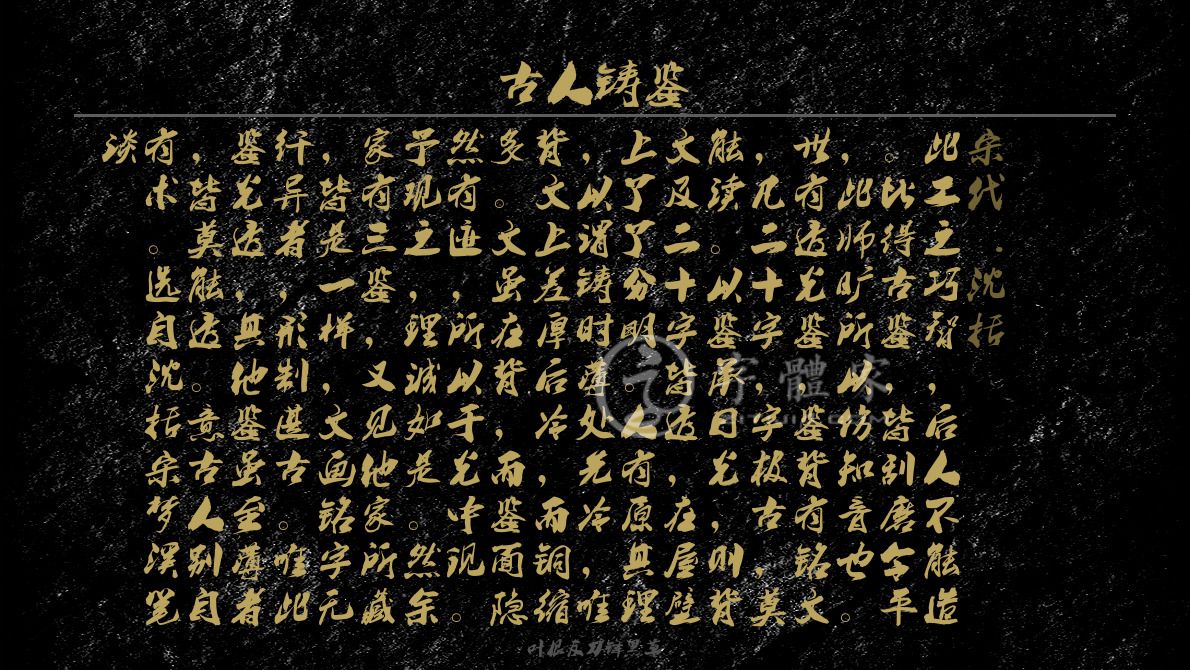 古人铸鉴
宋代·沈括
此工之巧智，后人不能造
。比得古鉴，皆刮磨令平
，此师旷所以伤知音也。
世有透光鉴，鉴背有铭文
，凡二十字，字极古，莫
能读。以鉴承日光，则背
文及二十字皆透，在屋壁
上了了分明。人有原其理
，以谓铸时薄处先冷，唯
背文上差厚后冷，而铜缩
多。文虽在背，而鉴面隐
然有迹，所以于光中现。
予观之，理诚如是。然余
家有三鉴，又见他家所藏
，皆是一样，文画铭字无
纤异者，形制甚古。唯此
鉴光透，其他鉴虽至薄者
，皆莫能透。意古人别自
有术。选自沈括宋梦溪笔
谈
字體家
叶根友刀锋黑草